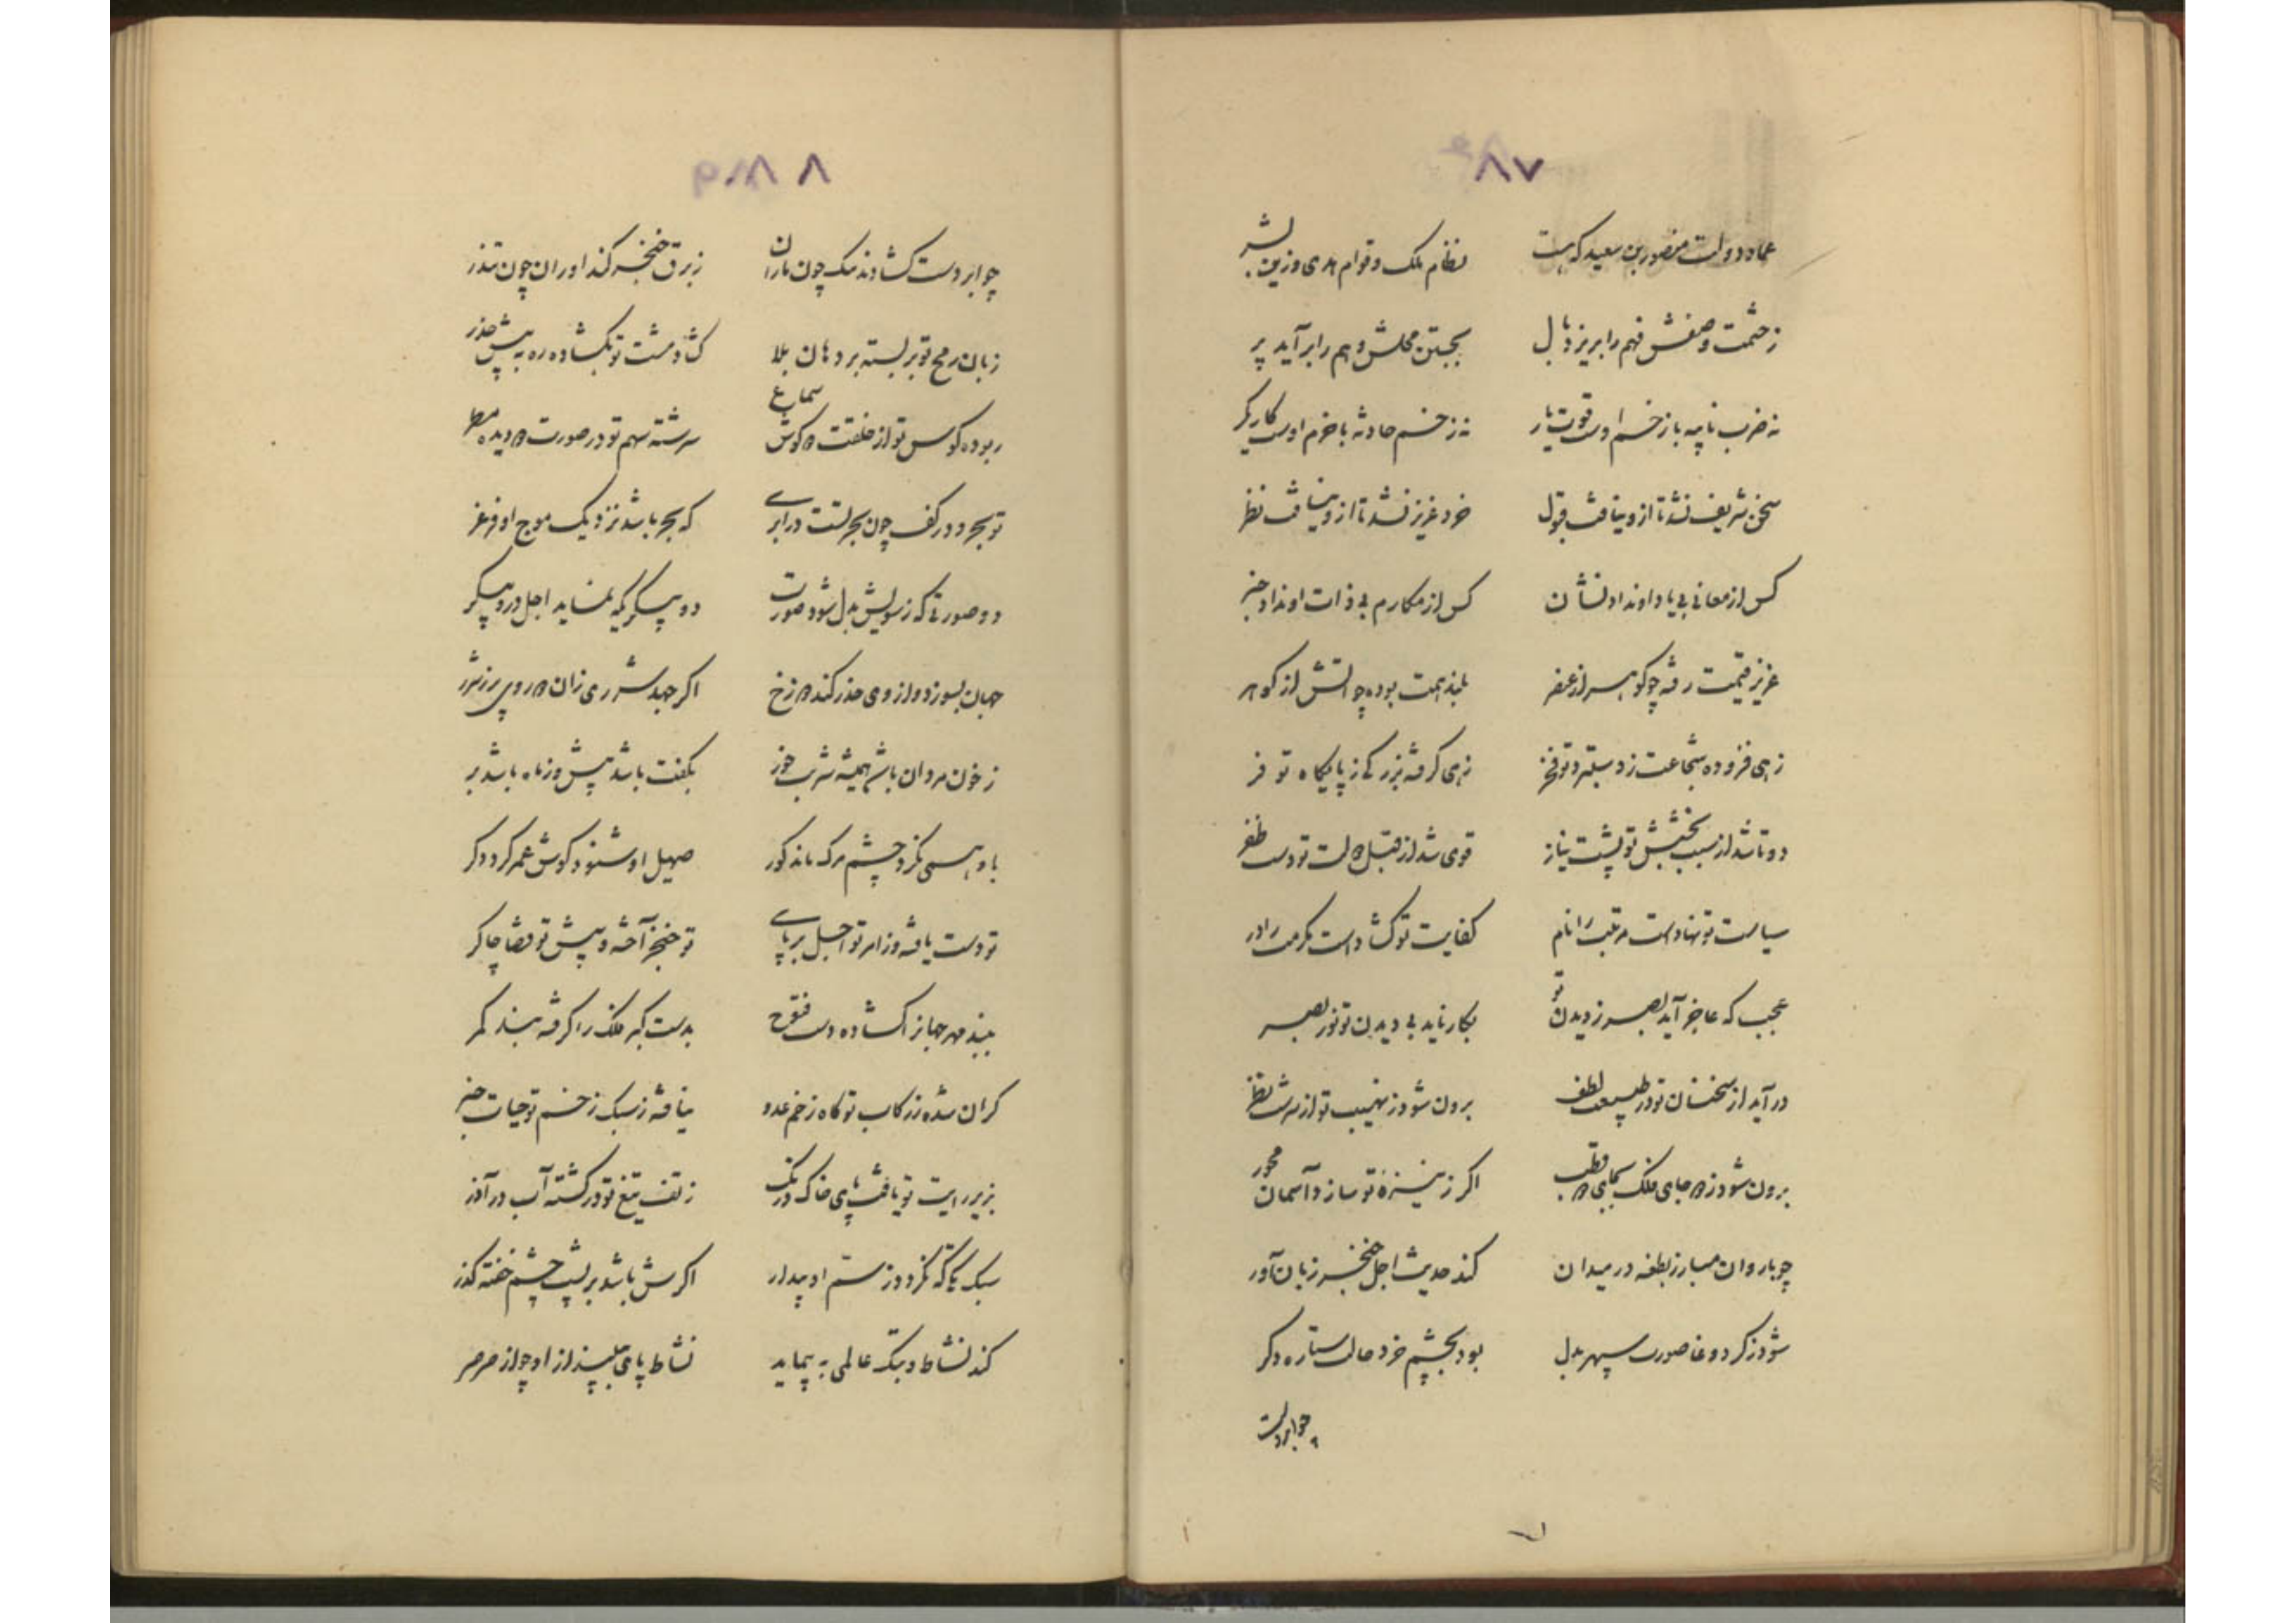 ۸۷
عماد دولت منصور بن سعید که هست نظام ملک و قوام هدی و زین بشر
ز حشمت و صفتش فهم را بریزد بال بجستن محلش وهم را برآید پر
نه ضرب نایبه با زخم اوست قوت یار نه زخم حادثه با حزم اوست کارکر
سخن شریف نشد تا ازو نیافت قبول خرد عزیز نشد تا ازو نیافت نظر
کس از معانی بی یاد او نداد نشان کس از مکارم بی ذات او نداد خبر
عزیز قیمت رفته چو کوهر از عنصر بلند همت بوده چو آتش از کوهر
زهی فزوده شجاعت ز دستبرد تو فخر زهی کرفته بزرکی ز پایکاه تو فر
دو تا شد از سبب بخشش تو پشت نیاز قوی شد از قبل آلت تو دست ظفر
سیاست تو نهادست مرتبت را نام کفایت تو کشادست مکرمت را در
عجب که عاجز آید بصر ز دیدن تو بکار ناید بی دیدن تو نور بصر
درآید از سخنان تو در طبیعت لطف برون شود ز نهیب تو از سرشت نظر
برون شود ز جای فلک بجای قطب اکر ز نیزه تو سازد آسمان محور
چو با روان مبارز بطعنه در میدان کند حدیث اجل خنجر زبان آور
شود ز کرد وغا صورت سپهر بدل بود بچشم خرد حالت ستاره دکر
چو ابر دست
۸۸
چو ابر دست کشادند یک چون باران ز برق خنجر کند اوران چون تندر
زبان رمح تو بر بسته بر دهان بلا کشاد مشت تو بکشاده ره به پیش حذر
ربوده کوس تو از خلقت کوش سماع سرشته سهم تو در صورت دیده
تو بحر و در کف چون بحر تست در ابری که بحر باشد نزدیک موج او فرغر
دو صورتی که ز سویش بدل شود صورت دو پیکری که نماید اجل درو پیکر
جهان بسوزد و از وی حذر کند دوزخ اکر جهد شرری زان روی پر ز شرر
ز خون مردان باشد همیشه شرب خور بکفت باشد پیش و زماه باشد بر
با و همی نکرد چشم مرک ماند کور صهیل او شنود کوش عمر کردد کر
تو دست یافته وز امر تو اجل بر پای تو خنجر آخته و پیش تو قضا چاکر
ببند مهر جهانرا کشاده دست فتوح بدست کبر فلک را کرفته بند کمر
کران شده ز رکاب تو کاه زخم عدو نیافته ز سبک زخم تو حیات خبر
بزیر رایت تو یافت پای خاک درنک ز تف تیغ تو در کشته آب در آذر
سبک تکی که نکردد ز سم او بیدار اکرش باشد بر پشت چشم خفته کذر
کند نشاط و بتک عالمی به پیماید نشاط پای بلند از او چو از صرصر